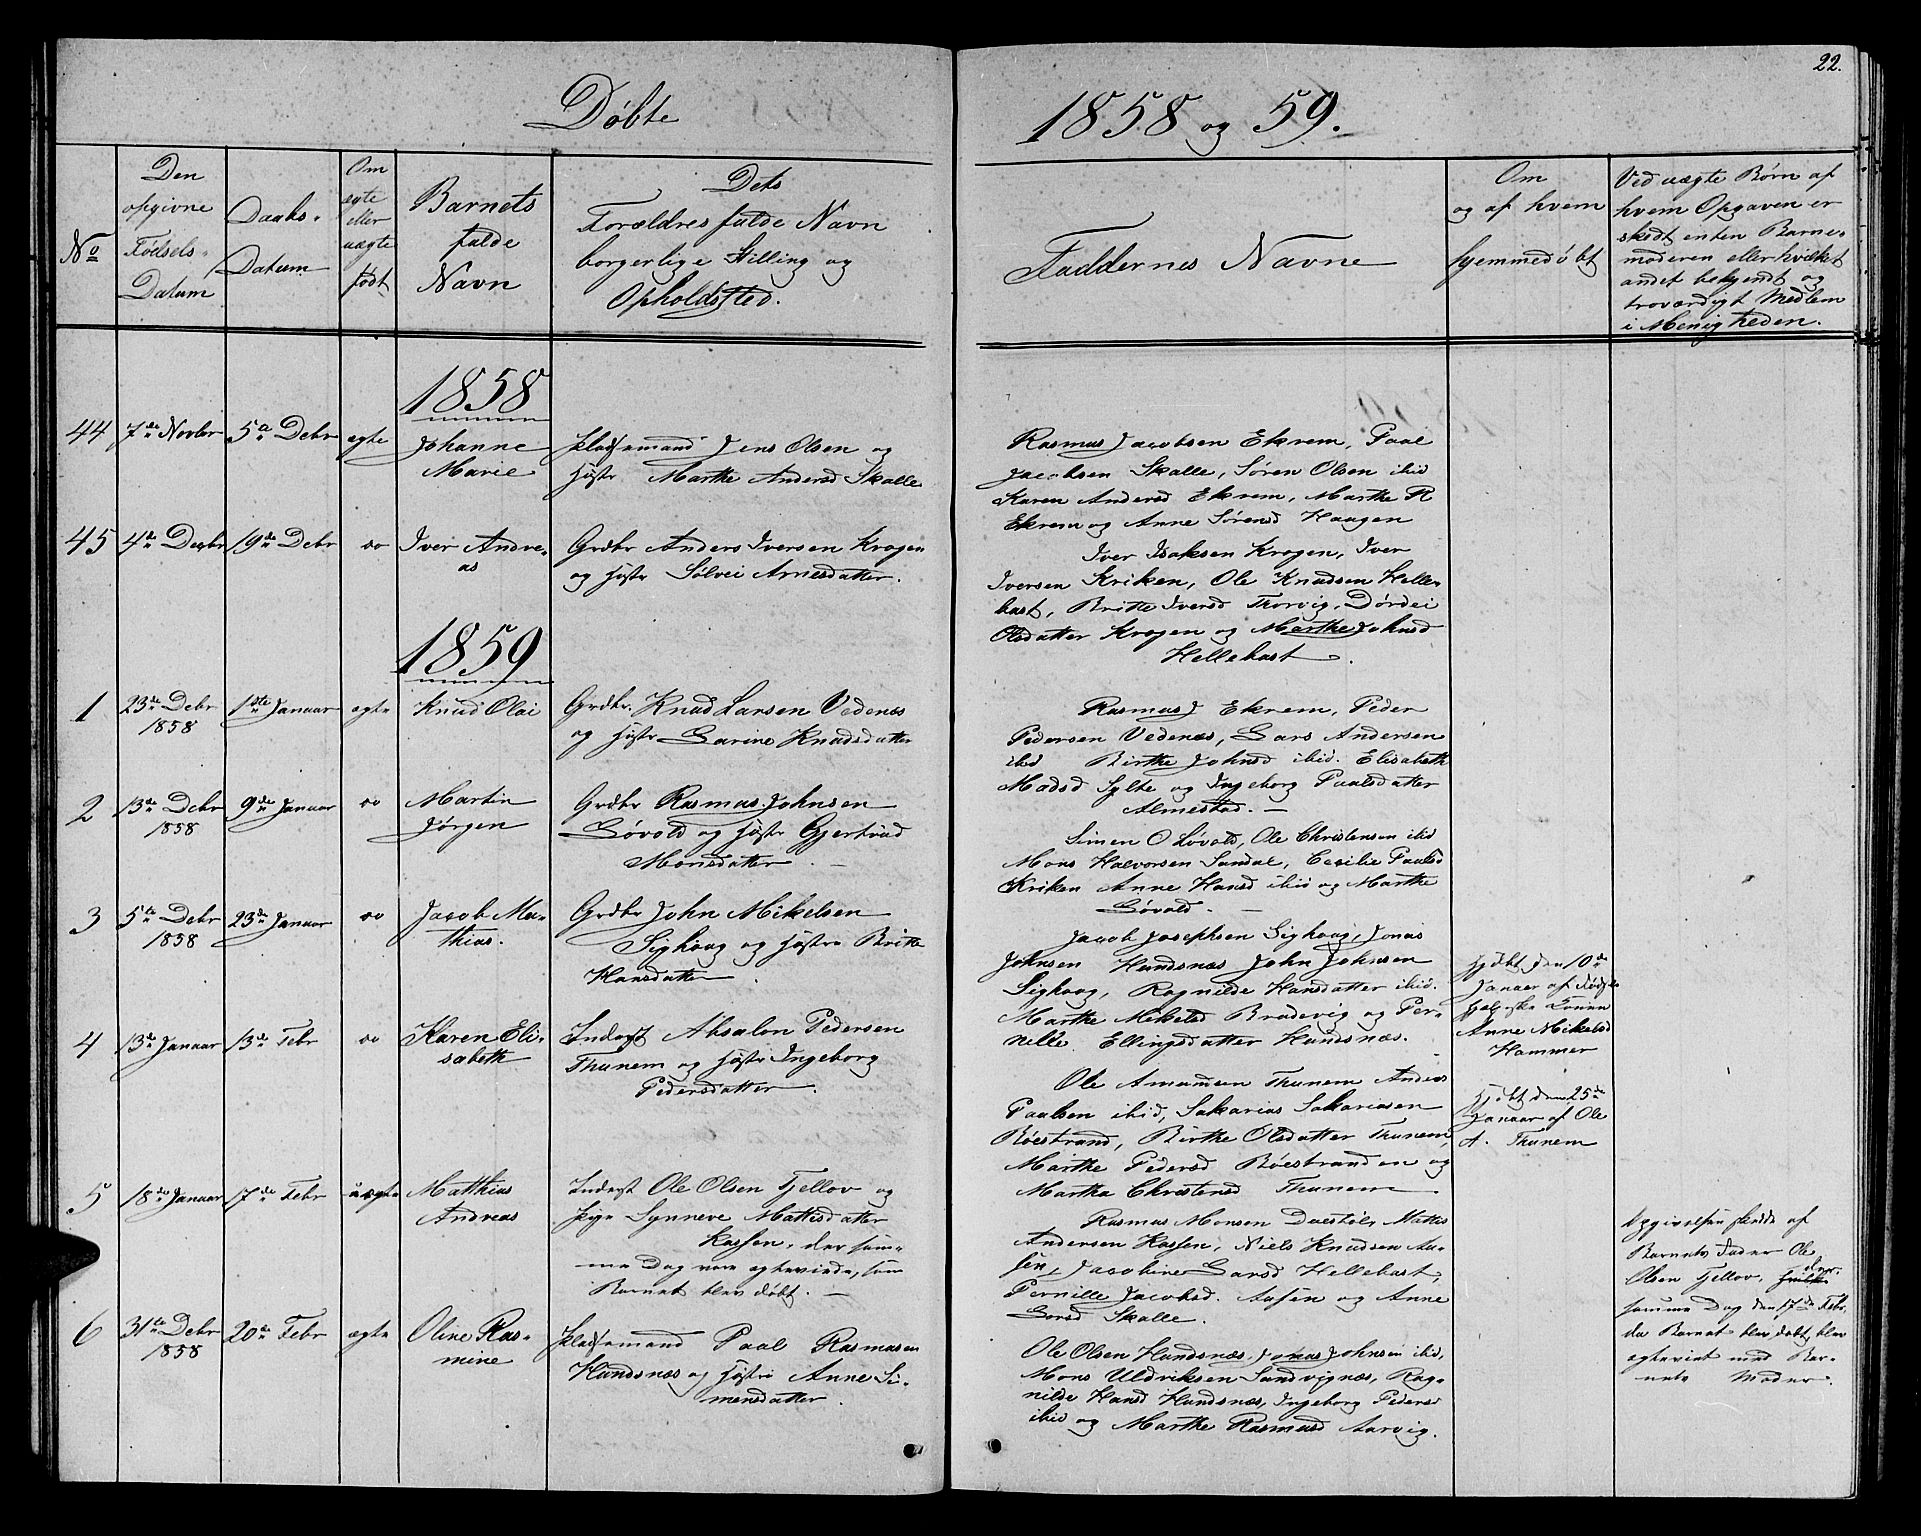 22.
Døbte
1858 og 59.
No
Den
opgivne
Fødsels-
Datum
Daabs-
Datum
Om
ægte
eller
uægte
født
Barnets
fulde
Navn
Dets
Forældres fulde Navn
borgerlige Stilling og
Opholdssted.
Faddernes Navne
Om
og af hvem
hjemmedøbt
Ved uægte Børn af
hvem Opgaven er
skedt enten Barne-
moderen eller hvilket
andet bekjendt og
troværdigt Medlem
i Menigheden.
1858
44
7de Novbr
5te Debr
ægte
Johanne
Marie
Pladsemand Jens Olsen og
Hustr Marthe Andersd Skalle
Rasmus Jacobsen Ekrem, Paal
Jacobsen Skalle, Søren Olsen ibid
Karen Andersd Ekrem, Marthe R
Ekrem og Anne Sørensd Haagen
45
4de Decbr
19de Debr
do
Iver Andre-
as
Grdbr Anders Iversen Krogen
og Hustr Sølvei Arnesdatter.
Iver Isaksen Krogen, Iver
Iversen Kriken, Ole Knudsen Helle-
bast, Britte Iversd Thorvig, Dørdei
Olsdatter Krogen og Marthe Johnsd
Hellebast.
1859
1
23de Debr
1858
1ste Januar
ægte
Knud Olai
Grdbr. Knud Larsen Vedenæs
og Hustr Sarine Knudsdatter
Rasmus J Ekrem, Peder
Pedersen Vedenæs, Lars Andersen
ibid Birthe Johnsd ibid. Elisabeth
Madsd Sylte og Ingeborg Paalsdatter
Almestad.
2
13de Debr
1858
9de Januar
do
Martin
Jørgen
Grdbr Rasmus Johnsen
Løvold og Hustr Gjertrud
Monsdatter.
Simen O Løvold, Ole Christensen ibid
Mons Halvorsen Sandal, Cecilie Paalsd
Kriken Anne Hansd ibid og Marthe
Løvold.
3
5te Debr
1858
23de Januar
do
Jacob Ma-
thias.
Grdbr John Mikelsen
Sighaag og Hustru Britte
Hansdatter
Jacob Josephsen Sighaag, Jonas
Johnsen Hundsnæs John Johnsen
Sighaag, Ragnilde Hansdatter ibid.
Marthe Mikelsd Bradevig og Per-
nille Ellingsdatter Hundsnæs.
Hjdøbt den 10de
Januar af Fødsels
hjelperske Konen
Anne Mikelsd
Hammer
4
13de Januar
13de Febr
do
Karen Eli-
sabeth
Inderst Absalon Pedersen
Thunem og Hustr Ingeborg
Pedersdatter.
Ole Amundsen Thunem Anders
Paalsen ibid, Sakarias Sakariasen
Røestrand, Birthe Olsdatter Thunem,
Marthe Pedersd Røestranden og
Martha Christensd Thunem.
Hjdøbt den 25de
Januar af Ole
A. Thunem
5
18de Januar
17de Febr
uægte
Matthias
Andreas
Inderst Ole Olsen Fjellov og
Pige Synneve Mattisdatter
Kassen, der sam-
me Dag vare ægteviede, som
Barnet blev døbt.
Rasmus Monsen Daestøl, Mattis
Andersen Kassen, Niels Knudsen Aa-
sen, Jacobine Larsd Hellebast,
Pernille Jacobsd. Aasen og Anne
Larsd Skalle.
Opgivelsen skedte af
Barnets Fader Ole
Olsen Fjellov, der
samme Dag den 17de Febr,
da Barnet blev døbt, blev
ægteviet med Bar-
nets Moder.
6
31te Debr
1858
20de Febr
ægte
Oline Ras-
mine
Pladsemand Paal Rasmusen
Hundsnæs og Hustru Anne Si-
mensdatter.
Ole Olsen Hundsnæs, Jonas Johnsen ibid,
Mons Uldriksen Sandvignæs, Rag-
nilde Hansd Hundsnæs, Ingeborg Pedersd
ibid og Marthe Rasmusd Aarvig.